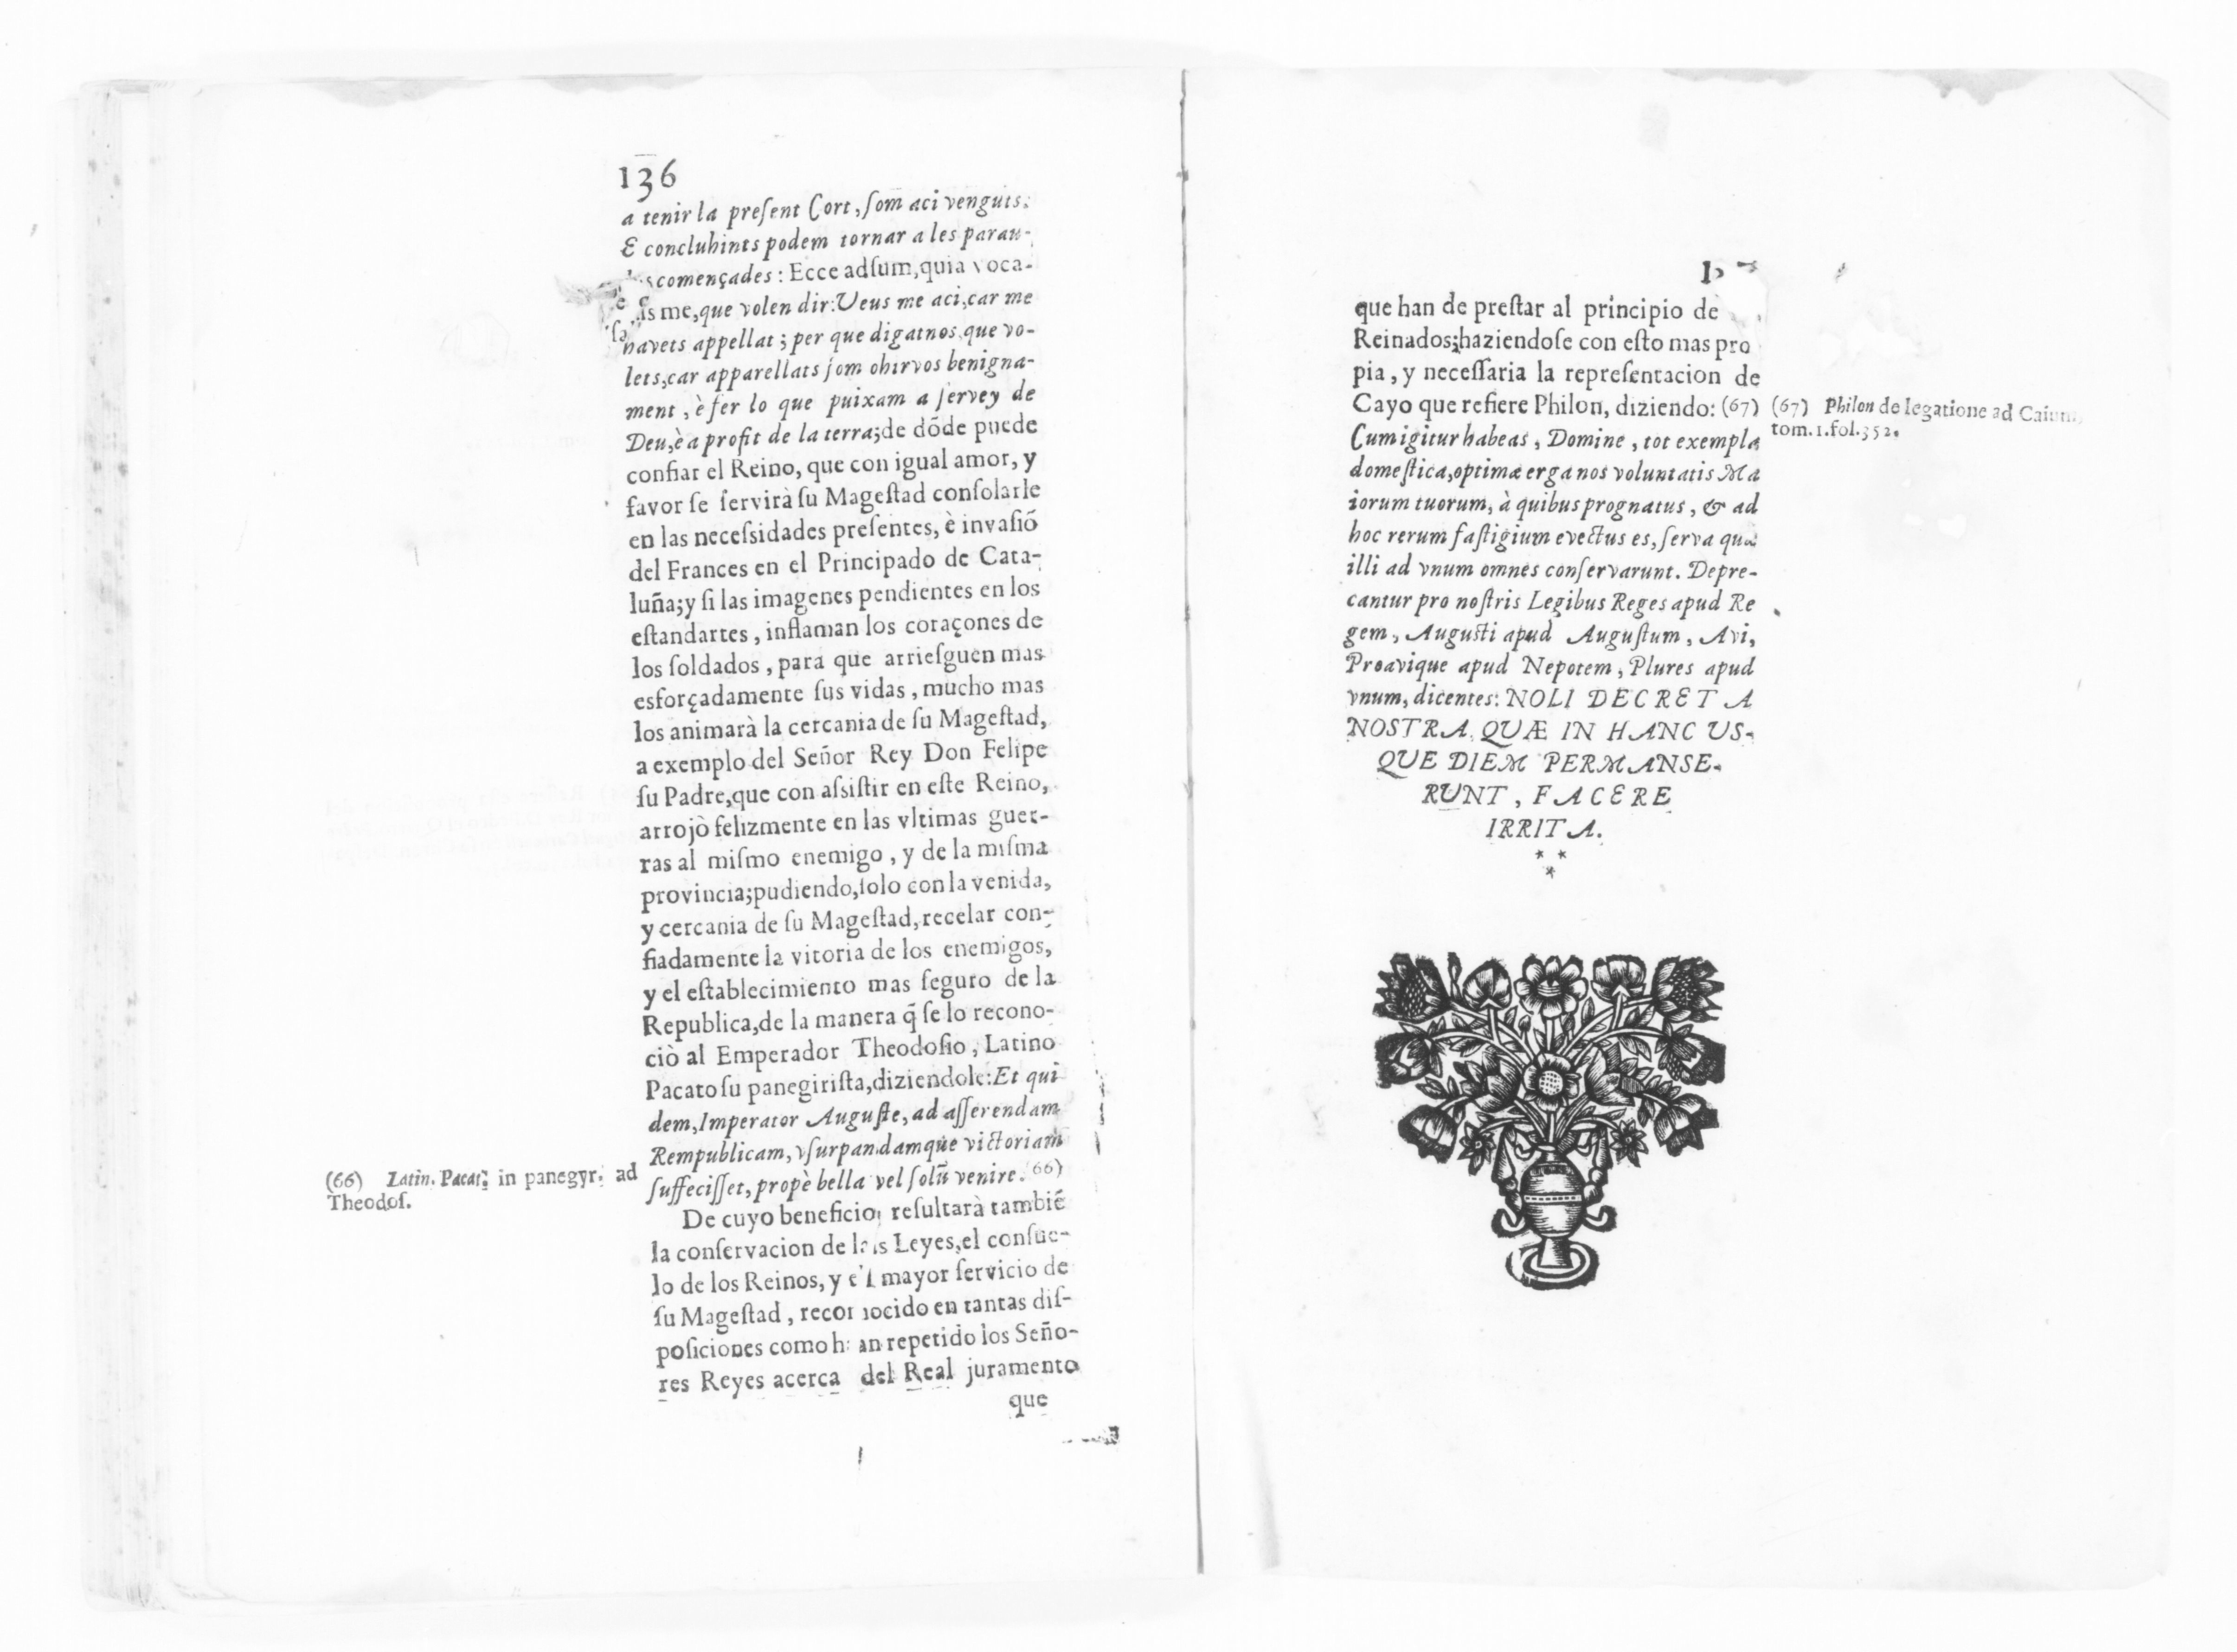 136
a tenir la preſent Cort, ſom aci venguts:
E concluhints podem tornar a les parau-
començades: Ecce adſum, quia voca-
me, que volen dir: Veus me aci, car me
havets appellat; per que digatnos que vo-
lets, car apparellats ſom ohirvos benigna-
ment, è fer lo que puixam a ſervey de
Deu, è a profit de la terra; de dõde puede
confiar el Reino, que con igual amor, y
favor ſe ſervirà ſu Mageſtad conſolarle
en las neceſsidades preſentes, è invaſiõ
del Frances en el Principado de Cata-
luña; y ſi las imagenes pendientes en los
eſtandartes, inflaman los coraçones de
los ſoldados, para que arrieſguen mas
esforçadamente ſus vidas, mucho mas
los animarà la cercania de ſu Mageſtad,
a exemplo del Señor Rey Don Felipe
ſu Padre, que con aſsiſtir en eſte Reino,
arrojò felizmente en las vltimas guer-
ras al miſmo enemigo, y de la miſma
provincia; pudiendo, ſolo con la venida,
y cercania de ſu Mageſtad, recelar con-
fiadamente la vitoria de los enemigos,
y el eſtablecimiento mas ſeguro de la
Republica, de la manera q̃ ſe lo recono-
ciò al Emperador Theodoſio, Latino
Pacato ſu panegiriſta, diziendole: Et qui
dem, Imperator Auguſte, ad aſſerendam
Rempublicam, vſurpandamque victoriam
ſuffeciſſet, propè bella vel ſolũ venire. (66)
De cuyo beneficio reſultarà tambiẽ
la conſervacion de las Leyes, el conſue-
lo de los Reinos, y el mayor ſervicio de
ſu Mageſtad, reconocido en tantas diſ-
poſiciones como han repetido los Seño-
res Reyes acerca del Real juramento
que
(66) Latin. Pacat. in panegyr. ad
Theodoſ.
que han de preſtar al principio de
Reinados; haziendoſe con eſto mas pro
pia, y neceſſaria la repreſentacion de
Cayo que refiere Philon, diziendo: (67)
Cum igitur habeas, Domine, tot exempla
domeſtica, optimæ erga nos voluntatis Ma
iorum tuorum, à quibus prognatus, & ad
hoc rerum faſtigium evectus es, ſerva quæ
illi ad vnum omnes conſervarunt. Depre-
cantur pro noſtris Legibus Reges apud Re
gem, Auguſti apud Auguſtum, Avi,
Proavique apud Nepotem, Plures apud
vnum, dicentes: NOLI DECRETA
NOSTRA, QUÆ IN HANC US-
QUE DIEM PERMANSE-
RUNT, FACERE
IRRITA.
(67) Philon de legatione ad Caium,
tom. 1. fol. 352.